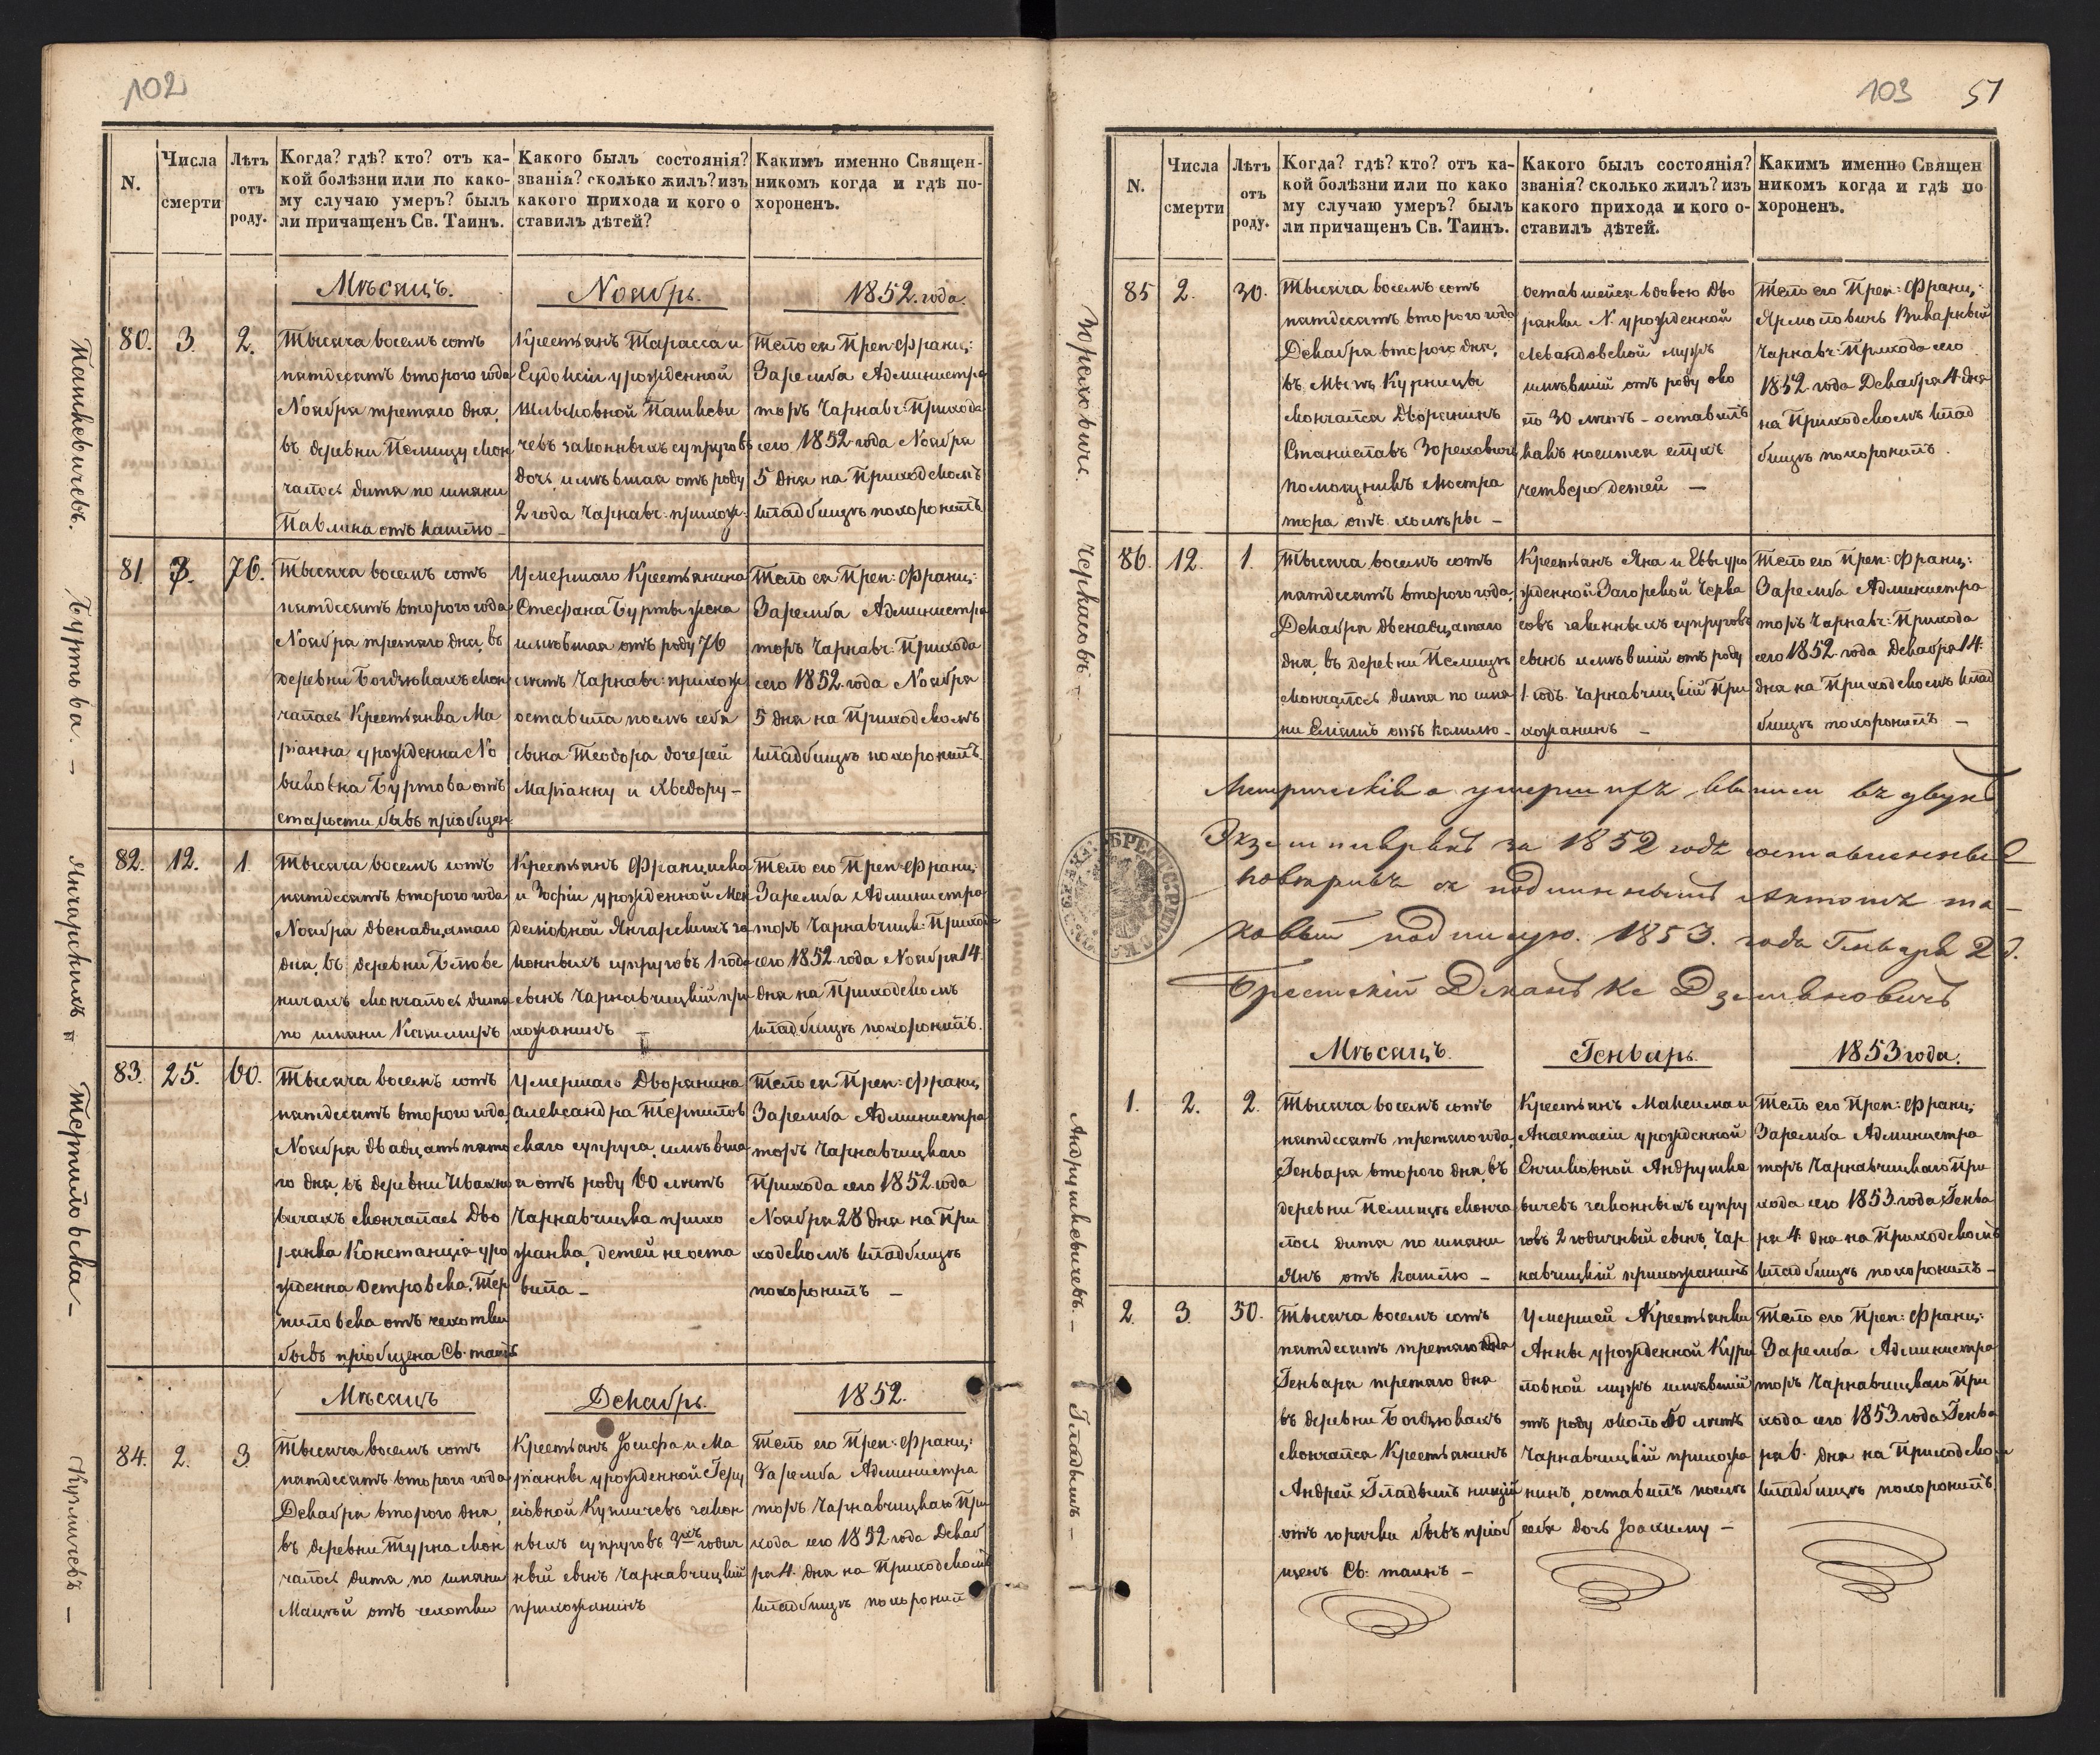 102
N.
Числа смерти
Лѣтъ отъ роду.
Когда? гдѣ? кто? отъ ка-
кой болѣзни или по како-
му случаю умеръ? былъ
ли причащенъ Св. Таинъ.
Какого былъ состоянія?
званія? сколько жилъ? изъ
какого прихода и кого о
ставилъ дѣтей?
Какимъ именно Священ-
никомъ когда и гдѣ по-
хороненъ.
Мѣсяцъ. Ноябрь. 1852. года.
80. 3. 2.
Тысяча восемъ сотъ
пятдесятъ второго года
Ноября третяго дня,
въ деревни Пелищу скон
чалось дитя по имяни
Павлина отъ кашлю –
Крестьянъ Тарасса и
Еудокіи урожденной
Пашкеви
чевъ законныхъ супруговъ
дочь имѣвшая отъ роду
2 года Чарнавч: прихож:
Тело ея Преп: Франц:
Заремба Администра
торъ Чарнавч: Прихода
сего 1852 года Ноября
5 дня на Приходскомъ
кладбищѣ похоронилъ
Пашкевичевъ.
81. 3. 76.
Тысяча восемъ сотъ
пятдесятъ второго года
Ноября третяго дня, въ
деревни Богдзюкахъ скон
чалась Крестьянка Ма
ріанна урожденна Но
виковна Буртова отъ
старости бывъ пріобщен
Умершаго Крестьянина
Стефана Бурты жена
имѣвшая отъ роду 76
лѣтъ Чарнавч: прихож
оставила послѣ себя
сына Теодора дочерей
Маріанну и Хведору –
Тело ея Преп: Франц:
Заремба Администра
торъ Чарнавч: Прихода
сего 1852 года Ноября
5 дня на Приходскомъ
кладбищѣ похоронилъ.
Буртова. –
82. 12. 1.
Тысяча восемъ сотъ
пятдесятъ второго года
Ноября двенадцатаго
дня, въ деревни Блюве
ничахъ скончалось дитя
по имяни Казимиръ
Крестьянъ Францишка
и Зофіи урожденной Мен
деліовной Янчарскихъ за
конныхъ супруговъ 1 года
сынъ Чарнавчицкій при
хожанинъ –
Тело его Преп: Франц:
Заремба Администра
торъ Чарнавчицк: Приход
сего 1852 года Ноября 14
дня на Приходскомъ
кладбищѣ похоронилъ.
Янчарскихъ
83. 25. 60.
Тысяча восемъ сотъ
пятдесятъ второго года,
Ноября двадцать пято
го дня, въ деревни Ивахно
вичахъ скончалась Дво
рянка Констанція уро
жденна Островска, Тер
пиловска отъ чехотки
бывъ пріобщена Св: таинъ
Умершаго Дворянина
Александра Терпилов
скаго супруга, имѣвша
я отъ роду 60 лѣтъ
Чарнавчицка прихо
жанка, детей не оста
вила –
Тело ея Преп: Франц
Заремба Администра
торъ Чарнавчицкаго
Прихода сего 1852 года
Ноября 28 дня на При
ходскомъ кладбищѣ
похоронилъ –
Терпиловска –
Мѣсяцъ Декабрь. 1852.
84. 2. 3
Тысяча восемъ сотъ
пятдесятъ второго года
Декабря второго дня,
въ деревни Турна скон
чалось дитя, по имяни
Мацѣй отъ чехотки
Крестьянъ Іосифа и Ма
ріанны урожденной Геру
сіовной Кузмичевъ закон
ныхъ супруговъ 3хъ годич
ный сынъ Чарнавчицкій
прихожанинъ
Тело его Преп: Франц:
Заремба Администра
торъ Чарнавчицкаго При
хода сего 1852 года Декаб
ря 4. дня на Приходскомъ
кладбищѣ похоронил
Кузмичевъ –
103 51
N.
Числа смерти
Лѣтъ отъ роду.
Когда? гдѣ? кто? отъ ка-
кой болѣзни или по како
му случаю умеръ? былъ
ли причащенъ Св. Таинъ.
Какого былъ состоянія?
званія? сколько жилъ? изъ
какого прихода и кого о-
ставилъ дѣтей.
Какимъ именно Священ
никомъ когда и гдѣ по
хороненъ.
85 2. 30.
Тысяча восемъ сотъ
пятдесятъ второго года
Декабря второго дня,
въ Курницы
скончался Дворянинъ
Станиславъ Зореховичъ
помощникъ
тора отъ холеры –
оставшейся вдовою Дво
рянки N. урожденной
Левандовской мужъ
имѣвшій отъ роду око
ло 30 лѣтъ – оставилъ
какъ носится слухъ
четверо детей –
Тело его Преп: Франц:
Ярмоловичь Викарный
Чарнавч: Прихода сего
1852 года Декабря 4 дня
на Приходскомъ клад
бищѣ похоронилъ.
Зореховичь.
86. 12. 1.
Тысяча восемъ сотъ
пятдесятъ второго года,
Декабря двенадцатаго
дня, въ деревни Пелищѣ
скончалось дитя по имя
ни Еліяшъ отъ кашлю –
Крестьянъ Яна и Еввы уро
жденной Загоревой Черка
совъ законныхъ супруговъ
сынъ имѣвшій отъ роду
1. годъ. Чарнавчицкій При
хожанинъ –
Тело его Преп: Франц:
Заремба Администра
торъ Чарнавч: Прихода
сего 1852 года Декабря 14.
дня на Приходскомъ клад
бищѣ похоронилъ –
Черкасовъ –
Метрическія о умершихъ выписи въ двухъ
Экземплярахъ за 1852 годъ составленные
повѣривъ съ подлинными Актами та-
ковыя подписую. 1853. года Генваря 2 д.
Брестскій Деканъ Кс Дземьяновичъ
Мѣсяцъ. Генварь. 1853 года.
1. 2. 2.
Тысяча восемъ сотъ
пятдесятъ третяго года,
Генваря второго дня, въ
деревни Пелищѣ сконча
лось дитя по имяни
Янъ отъ кашлю –
Крестьянъ Максима и
Анастасіи урожденной
Енчиковной Андрушке
вичевъ законныхъ супру
говъ 2 годичный сынъ, Чар
навчицкій прихожанинъ
Тело его Преп: Франц:
Заремба Администра
торъ Чарнавчицкаго При
хода сего 1853 года Генва
ря 4. дня на Приходскомъ
кладбищѣ похоронилъ –
Андрушкевичевъ. –
2. 3. 50.
Тысяча восемъ сотъ
пятдесятъ третяго года
Генваря третяго дня
въ деревни Богдзюкахъ
скончался Крестьянинъ
Андрей Гладышъ нищій
отъ горячки бывъ пріоб
щенъ Св: таинъ –
Умершей Крестьянки
Анны урожденной Кури
ловной мужъ имѣвшій
отъ роду около 50 лѣтъ
Чарнавчицкій прихожа
нинъ, оставилъ послѣ
себя дочь Іоахиму –
Тело его Преп: Франц:
Заремба Администра
торъ Чарнавчицкаго При
хода сего 1853 года Генва
ря 6. дня на Приходском
кладбищѣ похоронилъ
Гладышъ –